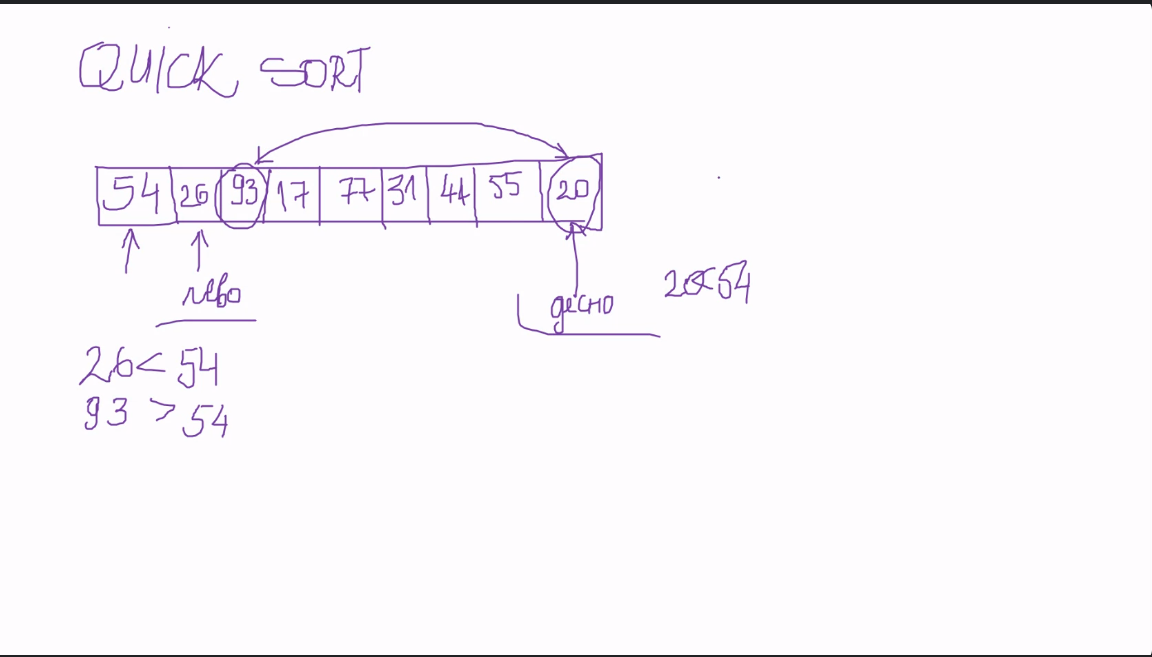 QUICK SORT
54 26 93 17 77 31 44 55 20
лево
десно
20<54
26< 54
93 > 54